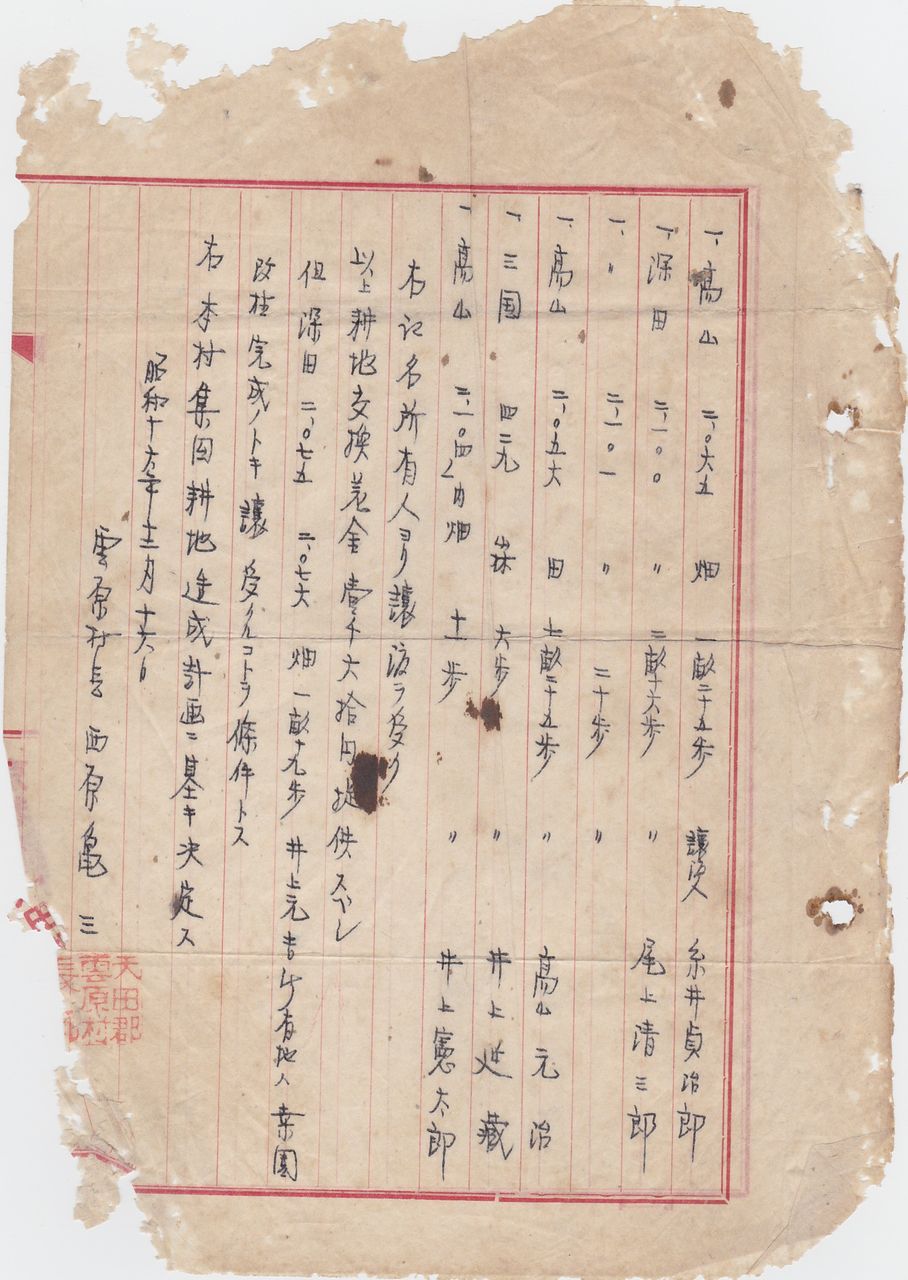 一、高山 二、〇六五 畑 一畝二十五歩 譲渡人 糸井貞治郎
一、深田 二、一〇〇 〃 二畝十六歩 〃 尾上清三郎
一、〃 二、一〇一 〃 二十歩 〃
一、高山 二、〇五六 田 七畝二十五歩 〃 高山元治
一、三国 四二九 山林 六歩 〃 井上延蔵
一、高山 二、一〇四ノ内 畑 十一歩 〃 井上憲太郎
右記名所有人ヨリ譲渡ヲ受ケ
以上耕地交換差金壹千六拾円提供スベシ
但深田二、〇七五 二、〇七六 畑一畝十九歩井上元吉所有地ハ桑園
改植完成ノトキ譲受クルコトヲ條件トス
右本村集団耕地造成計画ニ基キ決定ス
昭和十六年十二月十六日
雲原村長 西原亀三
天田郡
雲原村